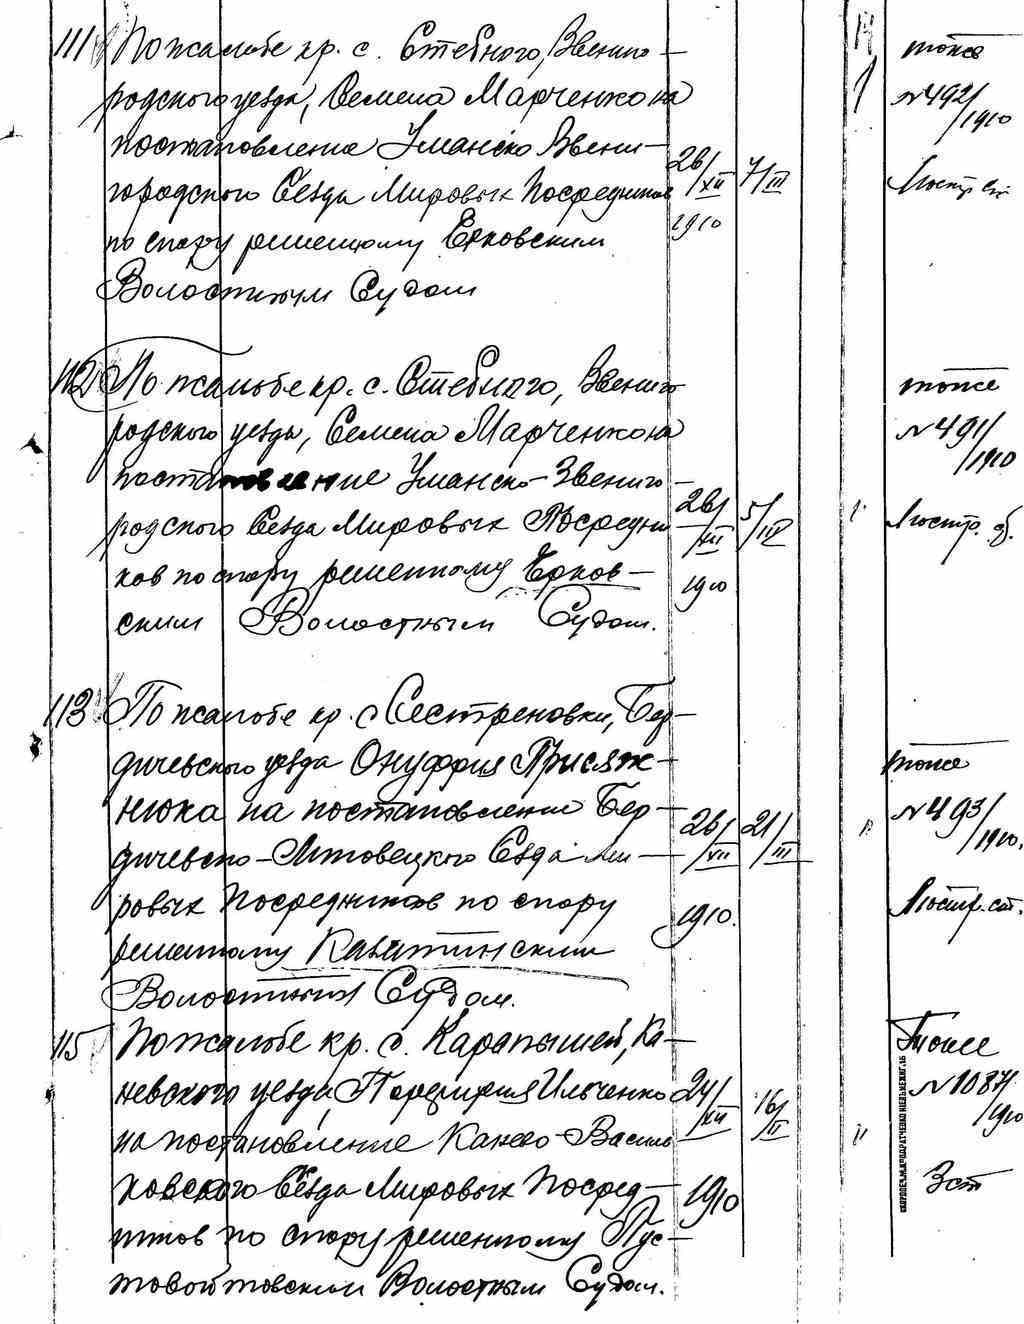 111 По жалобе кр. с. Стебного, Звениго-
родского уезда, Семена Марченко на
постановление Уманско Звени-
городского Сезда Мировых Посредников
по спору решенному Ерковским
Волостным Судом
26/XII 1910
7/III
1
тоже
№492/1910
112 По жалобе кр. с. Стебного, Звениго
родского уезда, Семена Марченко на
постановление Уманско-Звениго-
родского Сезда Мировых Посредни
ков по спору решенному Ерков-
ским Волостным Судом.
26/XII 1910
5/IV
тоже
№491/1910
113 По жалобе кр. с Сестреновки, Бер-
дичевского уезда Онуфрия Присяж-
нюка на постановление Бер-
дичевско-Липовецкого Сезда Ми-
ровых Посредников по спору
решенному Кавитинским
Волостным Судом.
26/XII 1910.
21/III
тоже
№493/1910.
115 По жалобе кр. с. Карапышей, Ка-
невского уезда, Порфирия Ильченко
на постановление Канево-Василь
ковского Сезда Мировых Посред-
ников по спору решенному Пус-
товойтовским Волостным Судом.
24/XII 1910
16/II
Тоже
№1087/1910